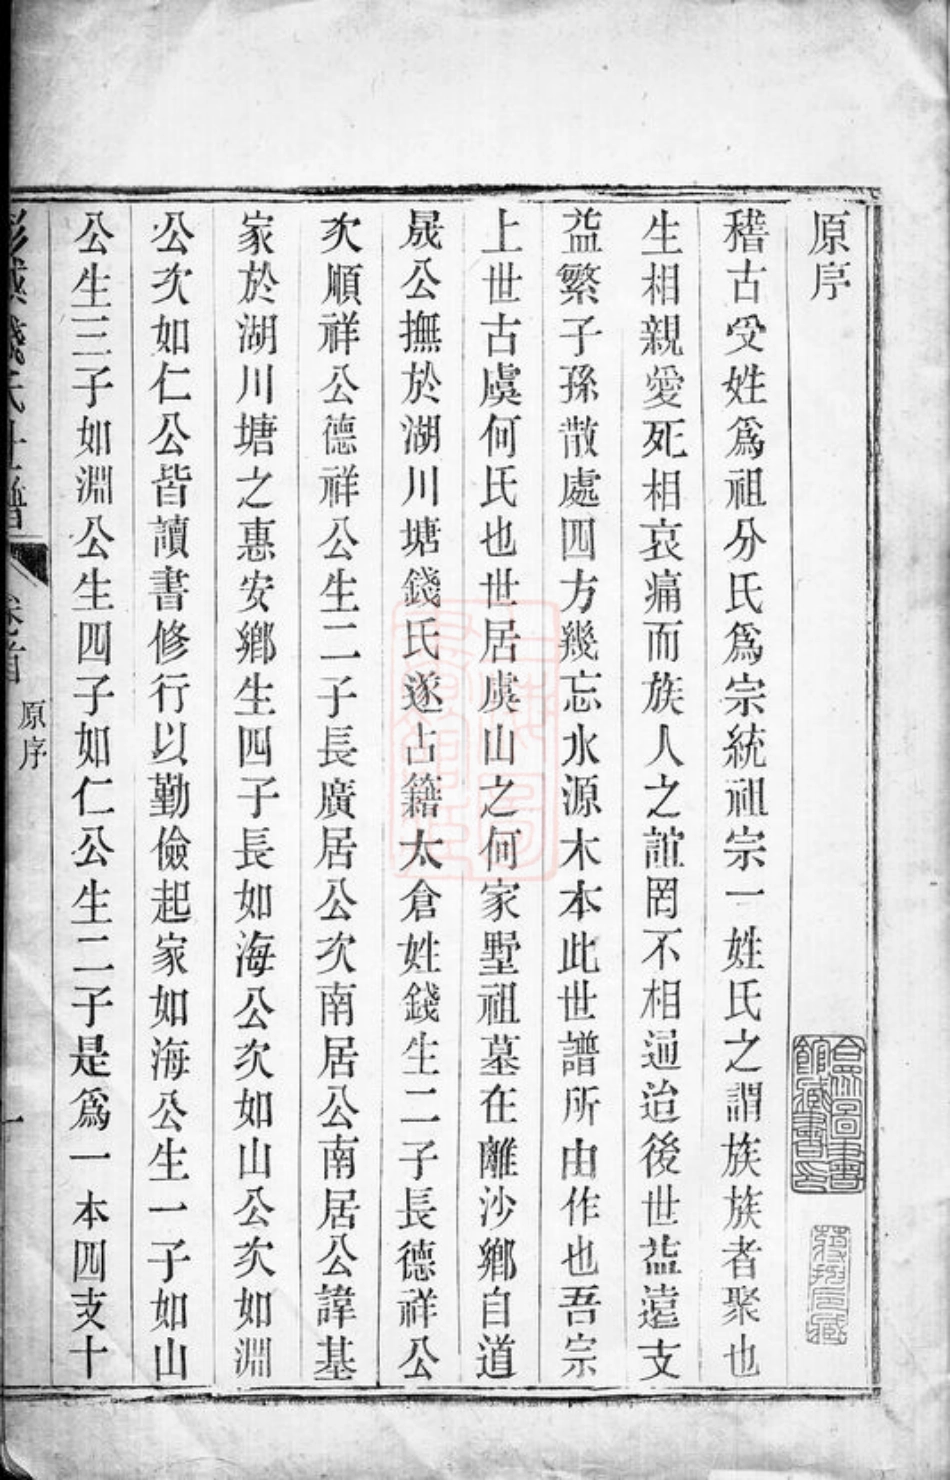 原序
稽古受姓爲祖分氏爲宗統祖宗一姓氏之謂族族者聚也
生相親愛死相哀痛而族人之誼罔不相通迨後世益遠支
益繁子孫散處四方幾忘水源木本此世譜所由作也吾宗
上世古虞何氏也世居虞山之何家墅祖墓在離沙鄉自道
晟公撫於湖川塘錢氏遂占籍太倉姓錢生二子長德祥公
次順祥公德祥公生二子長廣居公次南居公南居公諱基
家於湖川塘之惠安鄉生四子長如海公次如山公次如淵
公次如仁公皆讀書修行以勤儉起家如海公生一子如山
公生三子如淵公生四子如仁公生二子是爲一本四支十
氏世譜
卷首
原序
一